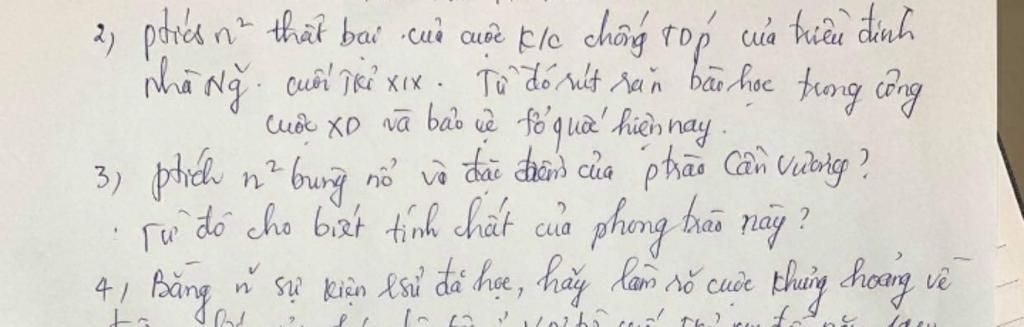 2) ptích n² thất bại của cuộc K/C chống TDP của triều đình
nhà Ng̃. cuối TKỉ XIX. Từ đó rút ra ñ bài học trong công
cuộc XD và bảo vệ tổ quốc hiện nay.
3) ptích n² bùng nổ và đặc điểm của ptrào Cần Vương?
Từ đó cho biết tính chất của phong trào này?
4, Bằng ñ sự kiện lsử đã học, hãy làm rõ cuộc khủng hoảng về